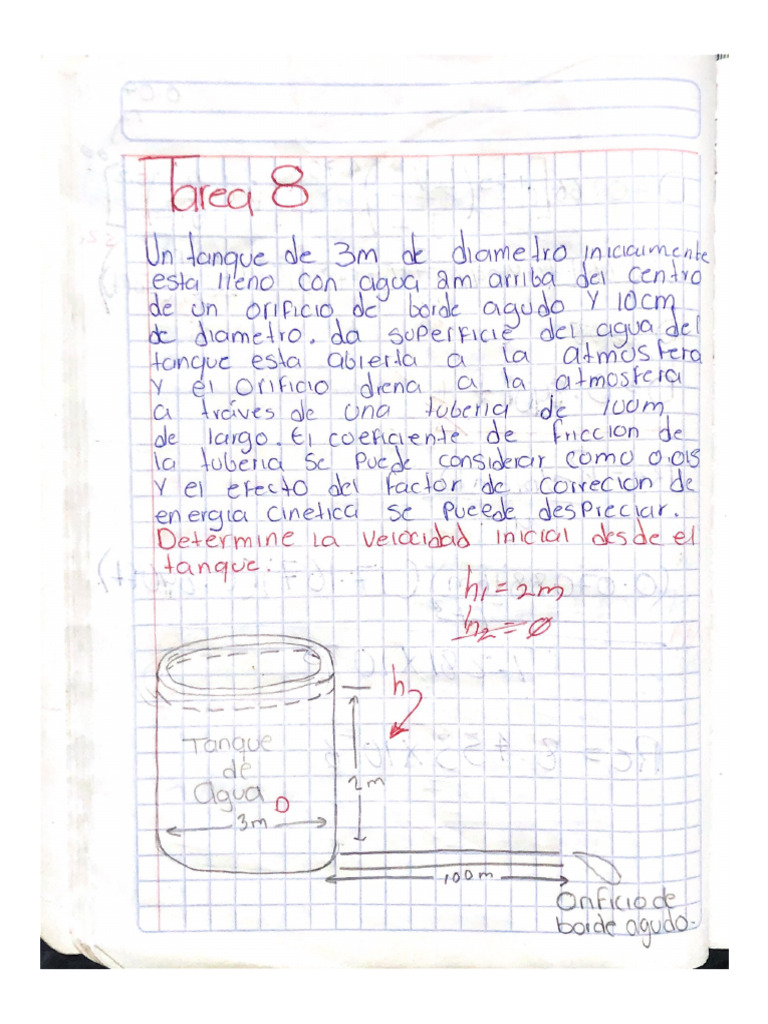 Tarea 8
Un tanque de 3m de diametro inicialmente
esta lleno con agua 2m arriba del centro
de un orificio de borde agudo y 10cm
de diametro. La superficie del agua del
tanque esta abierta a la atmosfera
y el orificio drena a la atmosfera
a tráives de una tuberia de 100m
de largo. El coeficiente de friccion de
la tuberia se puede considerar como 0.015
y el efecto del factor de correcion de
energia cinetica se pueede despreciar.
Determine la velocidad inicial desde el
tanque.
h1 = 2m
h2 = Ø
h
Tanque
de
agua D
2m
3m
100m
Orificio de
borde agudo.